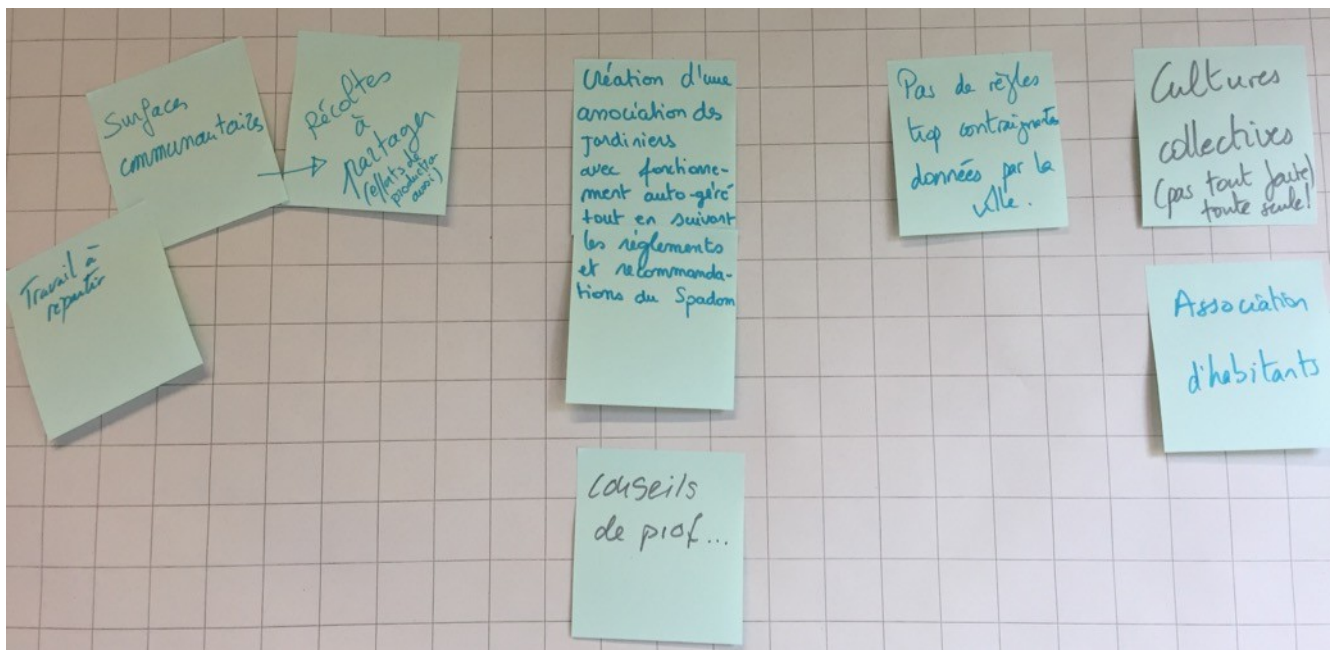 Surfaces
communautaires
Récoltes
à
partager
(efforts de
production
aussi)
Travail à
répartir
Création d'une
association des
jardiniers
avec fonctionne-
ment auto-géré
tout en suivant
les règlements
et recommanda-
tions du Spadom
Conseils
de prof...
Pas de règles
trop contraignantes
données par la
ville.
Cultures
collectives
(pas tout faire)
toute seule!
Association
d'habitants